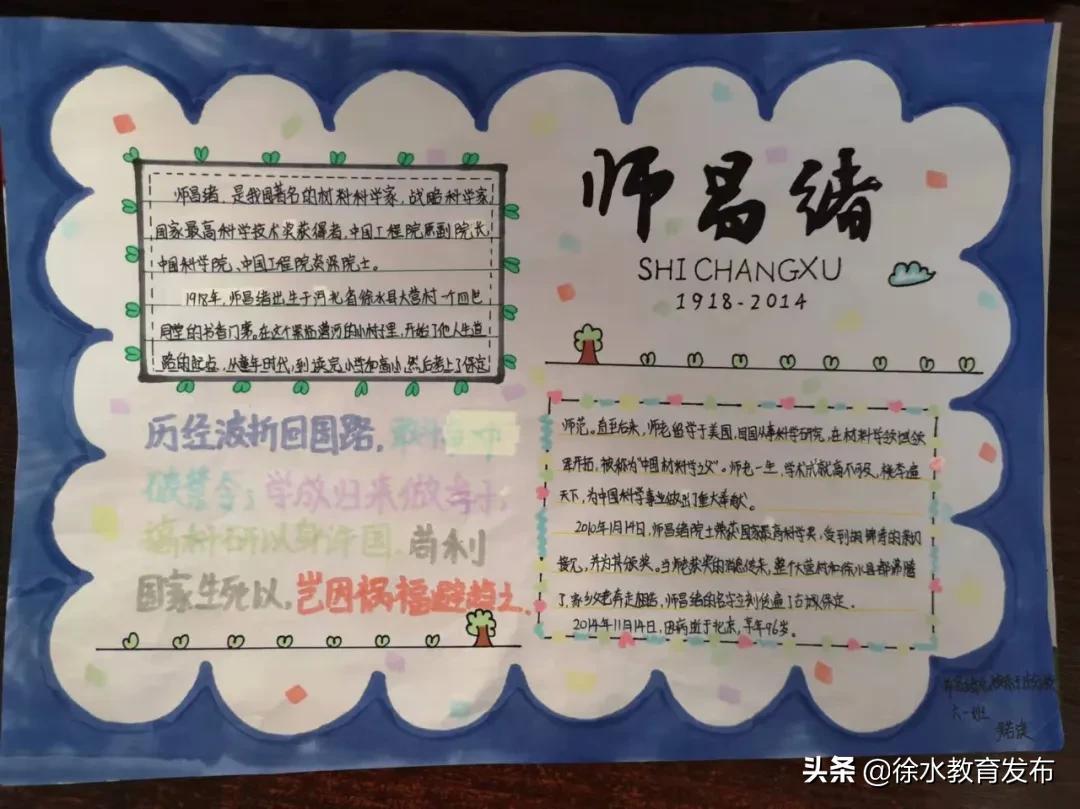 师昌绪
SHI CHANGXU
1918-2014
师昌绪，是我国著名的材料科学家，战略科学家
国家最高科学技术奖获得者，中国工程院原副院长，
中国科学院、中国工程院资深院士。
1918年，师昌绪出生于河北省徐水县大营村一个四世
同堂的书香门第。在这个紧临漕河的小村子里，开始了他人生道
路的起点，从童年时代，到读完小学和高小，然后考上了保定
历经波折回国路，敢
破禁令；学成归来做
高科研以身许国。苟利
国家生死以，岂因祸福避趋之。
师范。直至后来，师老留学于美国，回国从事科学研究，在材料科学领域领
军开拓，被称为“中国材料学之父”。师老一生，学术成就高不可及，桃李遍
天下，为中国科学事业做出了重大奉献。
2010年1月14日，师昌绪院士荣获国家最高科学奖，受到胡锦涛的亲切
接见，并为其颁奖。当师老获奖的消息传来，整个大营村和徐水县都沸腾
了，家乡父老奔走相告，师昌绪的名字立刻传遍了古城保定。
2014年11月14日，因病逝于北京，享年96岁。
六一班
头条 @徐水教育发布